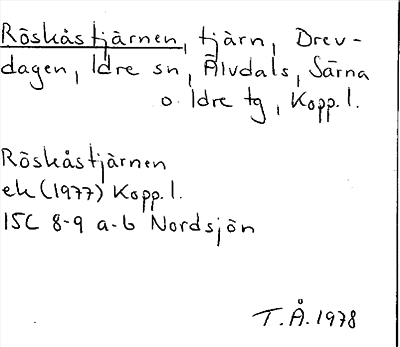 Röskåstjärnen, tjärn, Drev-
dagen, Idre sn, Älvdals, Särna
o. Idre tg, Kopp.l.
Röskåstjärnen
ek (1977) Kopp.l.
15C 8-9 a-b Nordsjön
T.Å. 1978